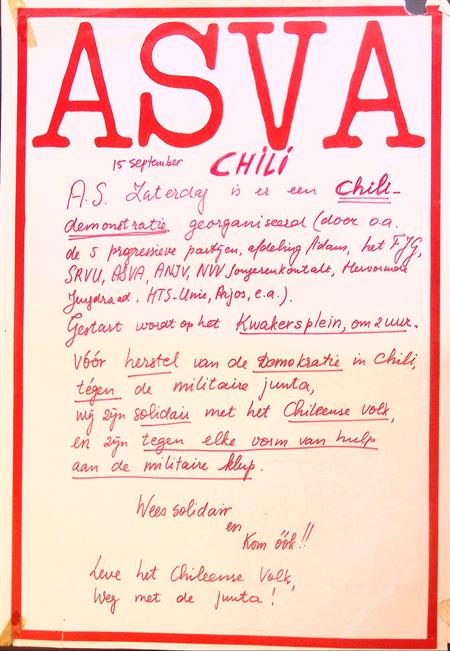 ASVA
15 september CHILI
A.S. Zaterdag is er een Chili-
demonstratie georganiseerd (door o.a.
de 5 progressieve partijen, afdeling A'dam, het FJG,
SRVU, ASVA, ANJV, NVV Jongerenkontakt, Hervormde
Jeugdraad, HTS-Unie, Anjos, e.a.).
Gestart wordt op het Kwakersplein, om 2 uur.
Vóór herstel van de Demokratie in Chili,
tégen de militaire junta,
wij zijn solidair met het Chileense volk,
en zijn tegen elke vorm van hulp
aan de militaire klup.
Wees solidair
en
Kom óók!!
Leve het Chileense Volk,
Weg met de junta!